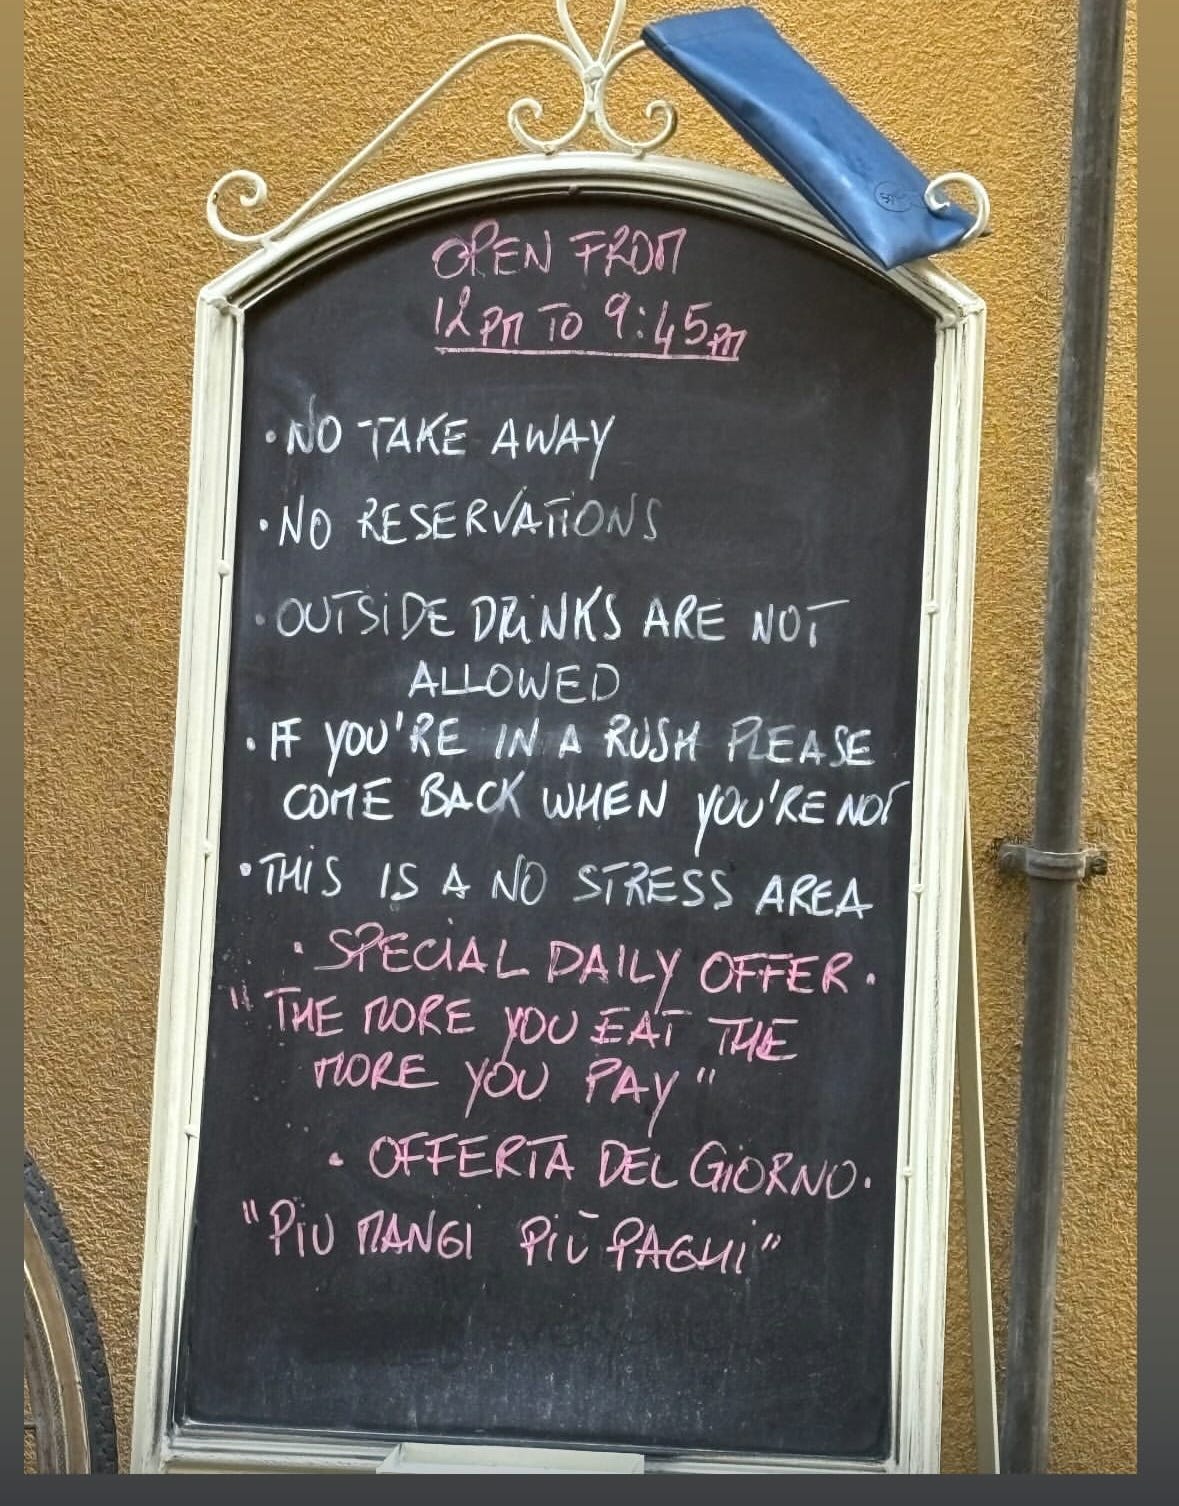 OPEN FROM
12 PM TO 9:45 PM
• NO TAKE AWAY
• NO RESERVATIONS
• OUTSIDE DRINKS ARE NOT
ALLOWED
• IF YOU'RE IN A RUSH PLEASE
COME BACK WHEN YOU'RE NOT
• THIS IS A NO STRESS AREA
• SPECIAL DAILY OFFER •
"THE MORE YOU EAT THE
MORE YOU PAY"
• OFFERTA DEL GIORNO •
"PIU MANGI PIÙ PAGHI"